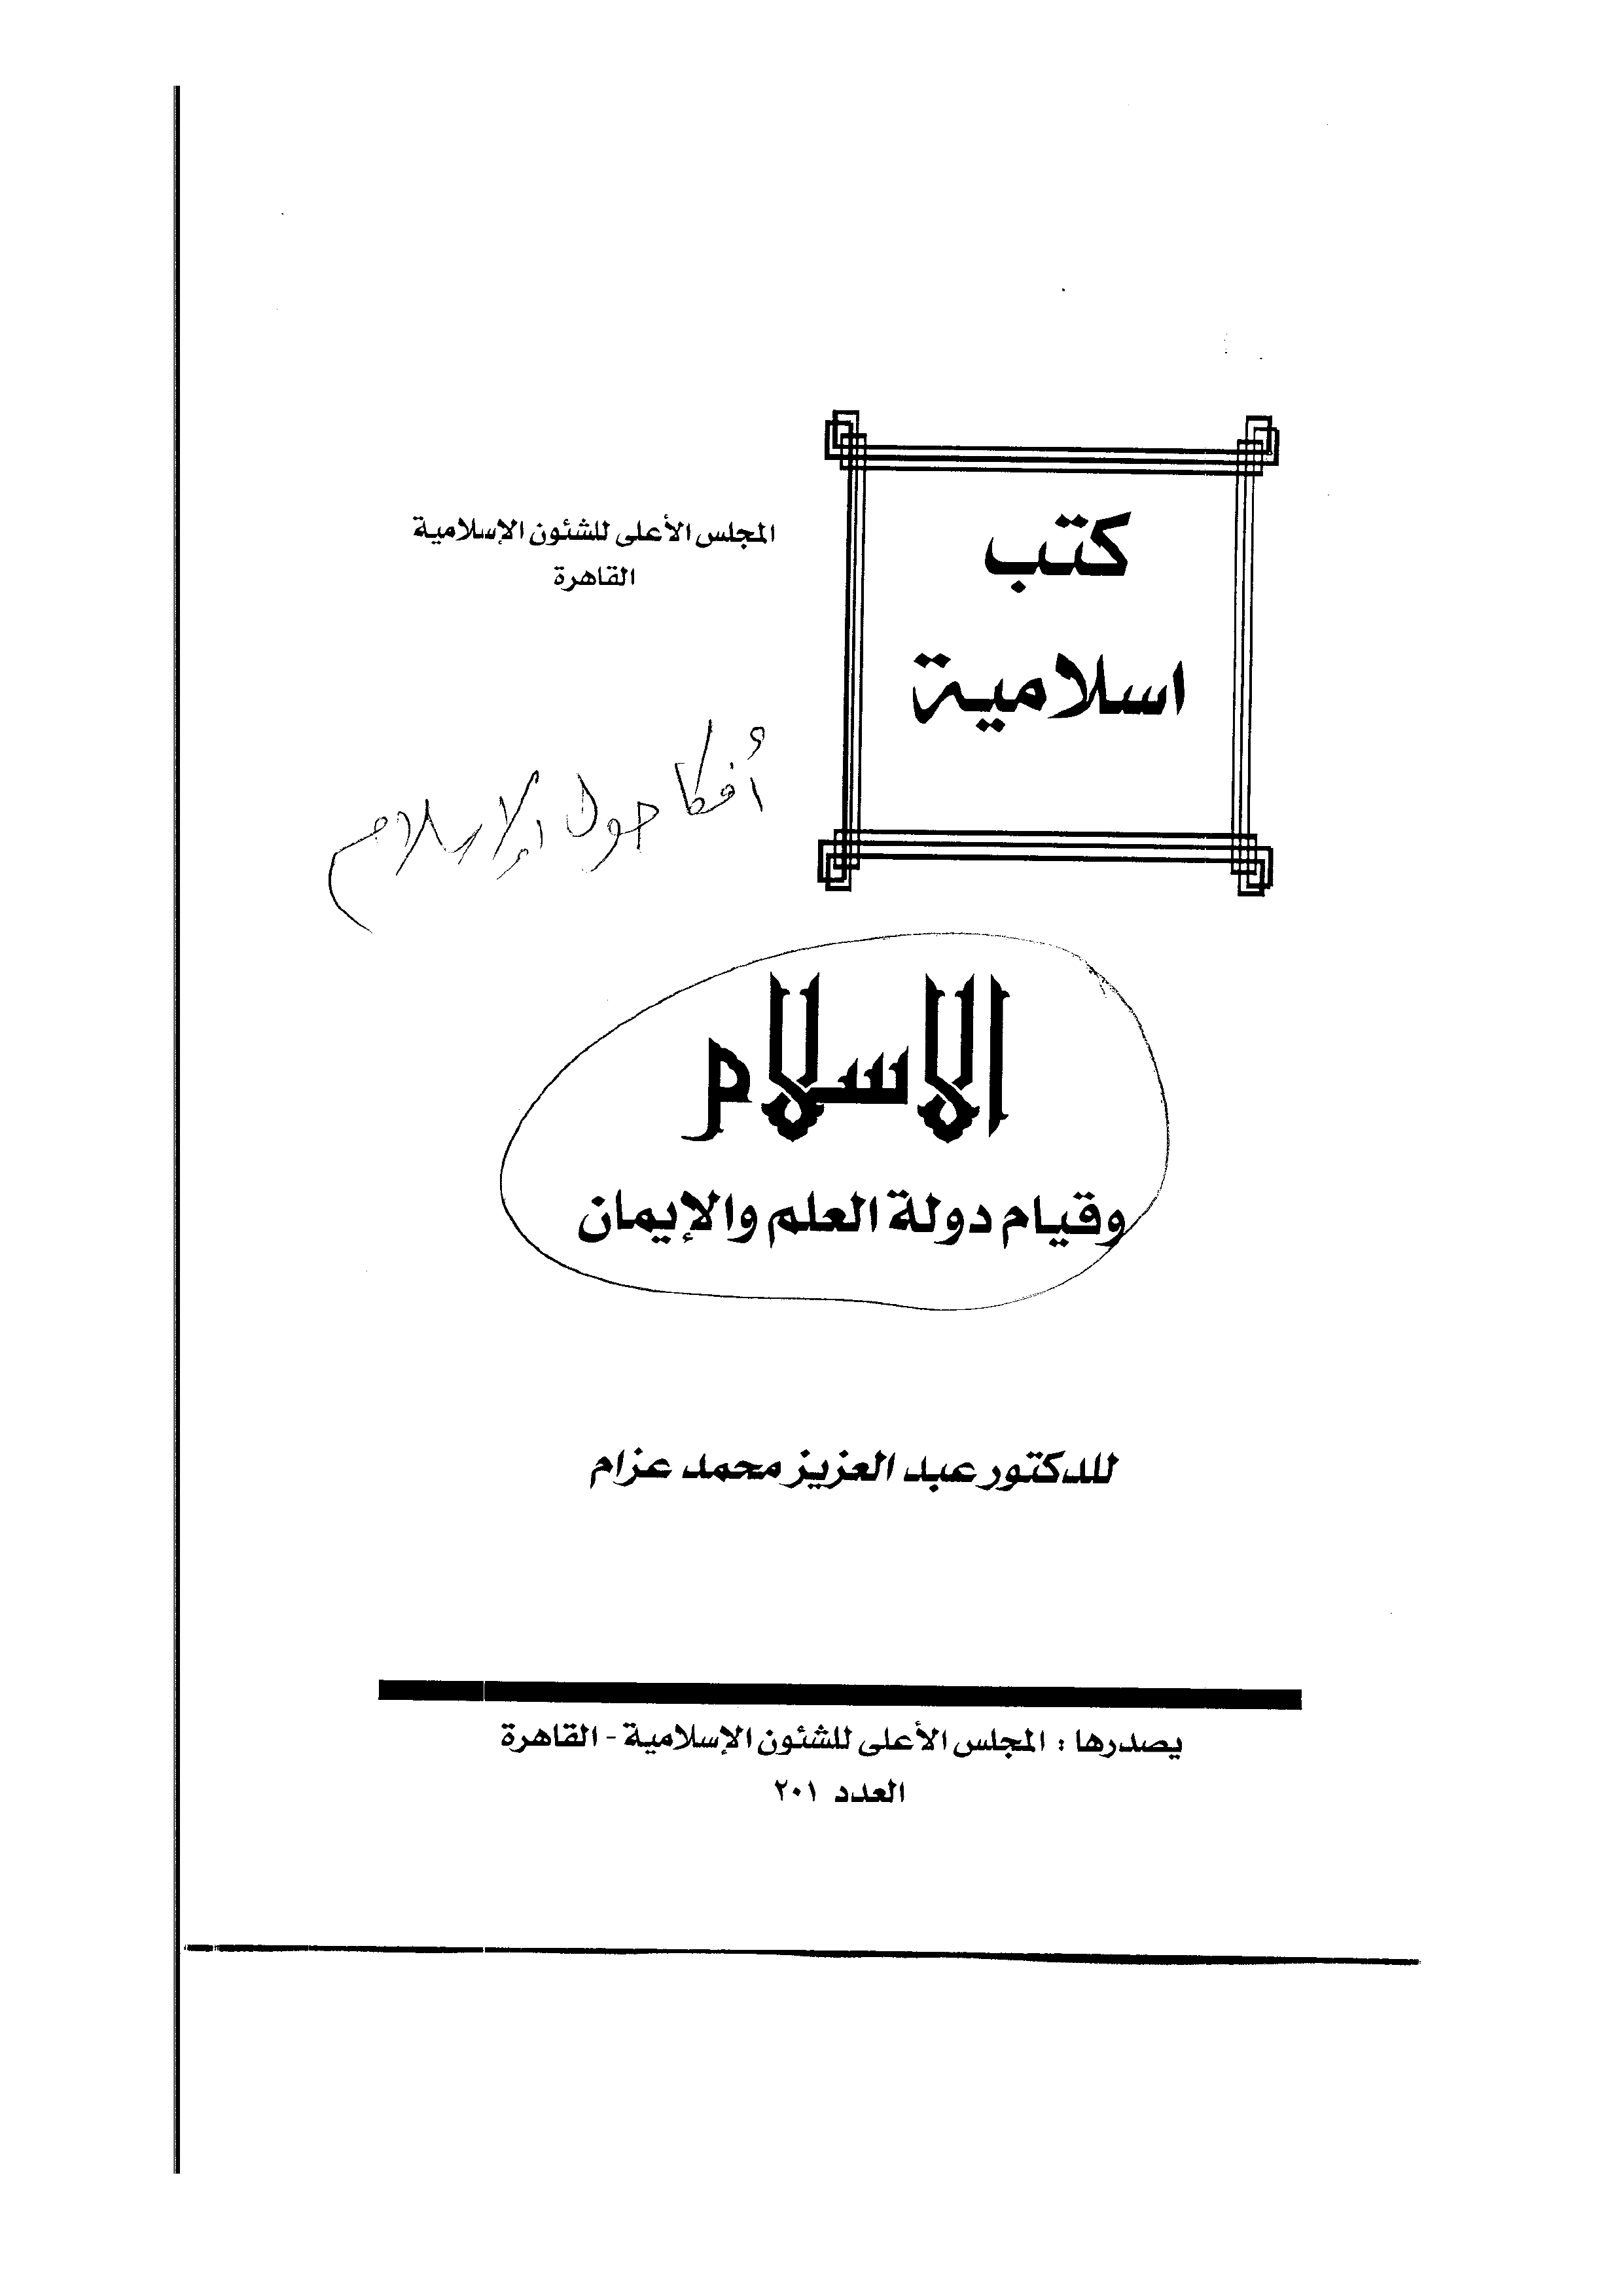 كتب
اسلامية
المجلس الأعلى للشئون الإسلامية
القاهرة
أفكا حول الإسلام
الاسلام
وقيام دولة العلم والإيمان
للدكتور عبد العزيز محمد عزام
يصدرها : المجلس الأعلى للشئون الإسلامية - القاهرة
العدد ٢٠١